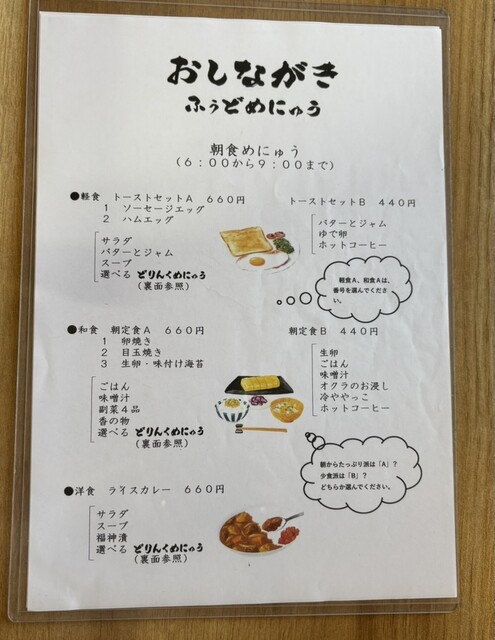 おしながき
ふぅどめにゅう
朝食めにゅう
(6:00から9:00まで)
●軽食 トーストセットA 660円
1 ソーセージエッグ
2 ハムエッグ
サラダ
バターとジャム
スープ
選べる どりんくめにゅう
(裏面参照)
トーストセットB 440円
バターとジャム
ゆで卵
ホットコーヒー
軽食A、和食Aは、
番号を選んでくださ
い。
●和食 朝定食A 660円
1 卵焼き
2 目玉焼き
3 生卵・味付け海苔
ごはん
味噌汁
副菜4品
香の物
選べる どりんくめにゅう
(裏面参照)
朝定食B 440円
生卵
ごはん
味噌汁
オクラのお浸し
冷ややっこ
ホットコーヒー
朝からたっぷり派は「A」?
少食派は「B」?
どちらか選んでください。
●洋食 ライスカレー 660円
サラダ
スープ
福神漬
選べる どりんくめにゅう
(裏面参照)